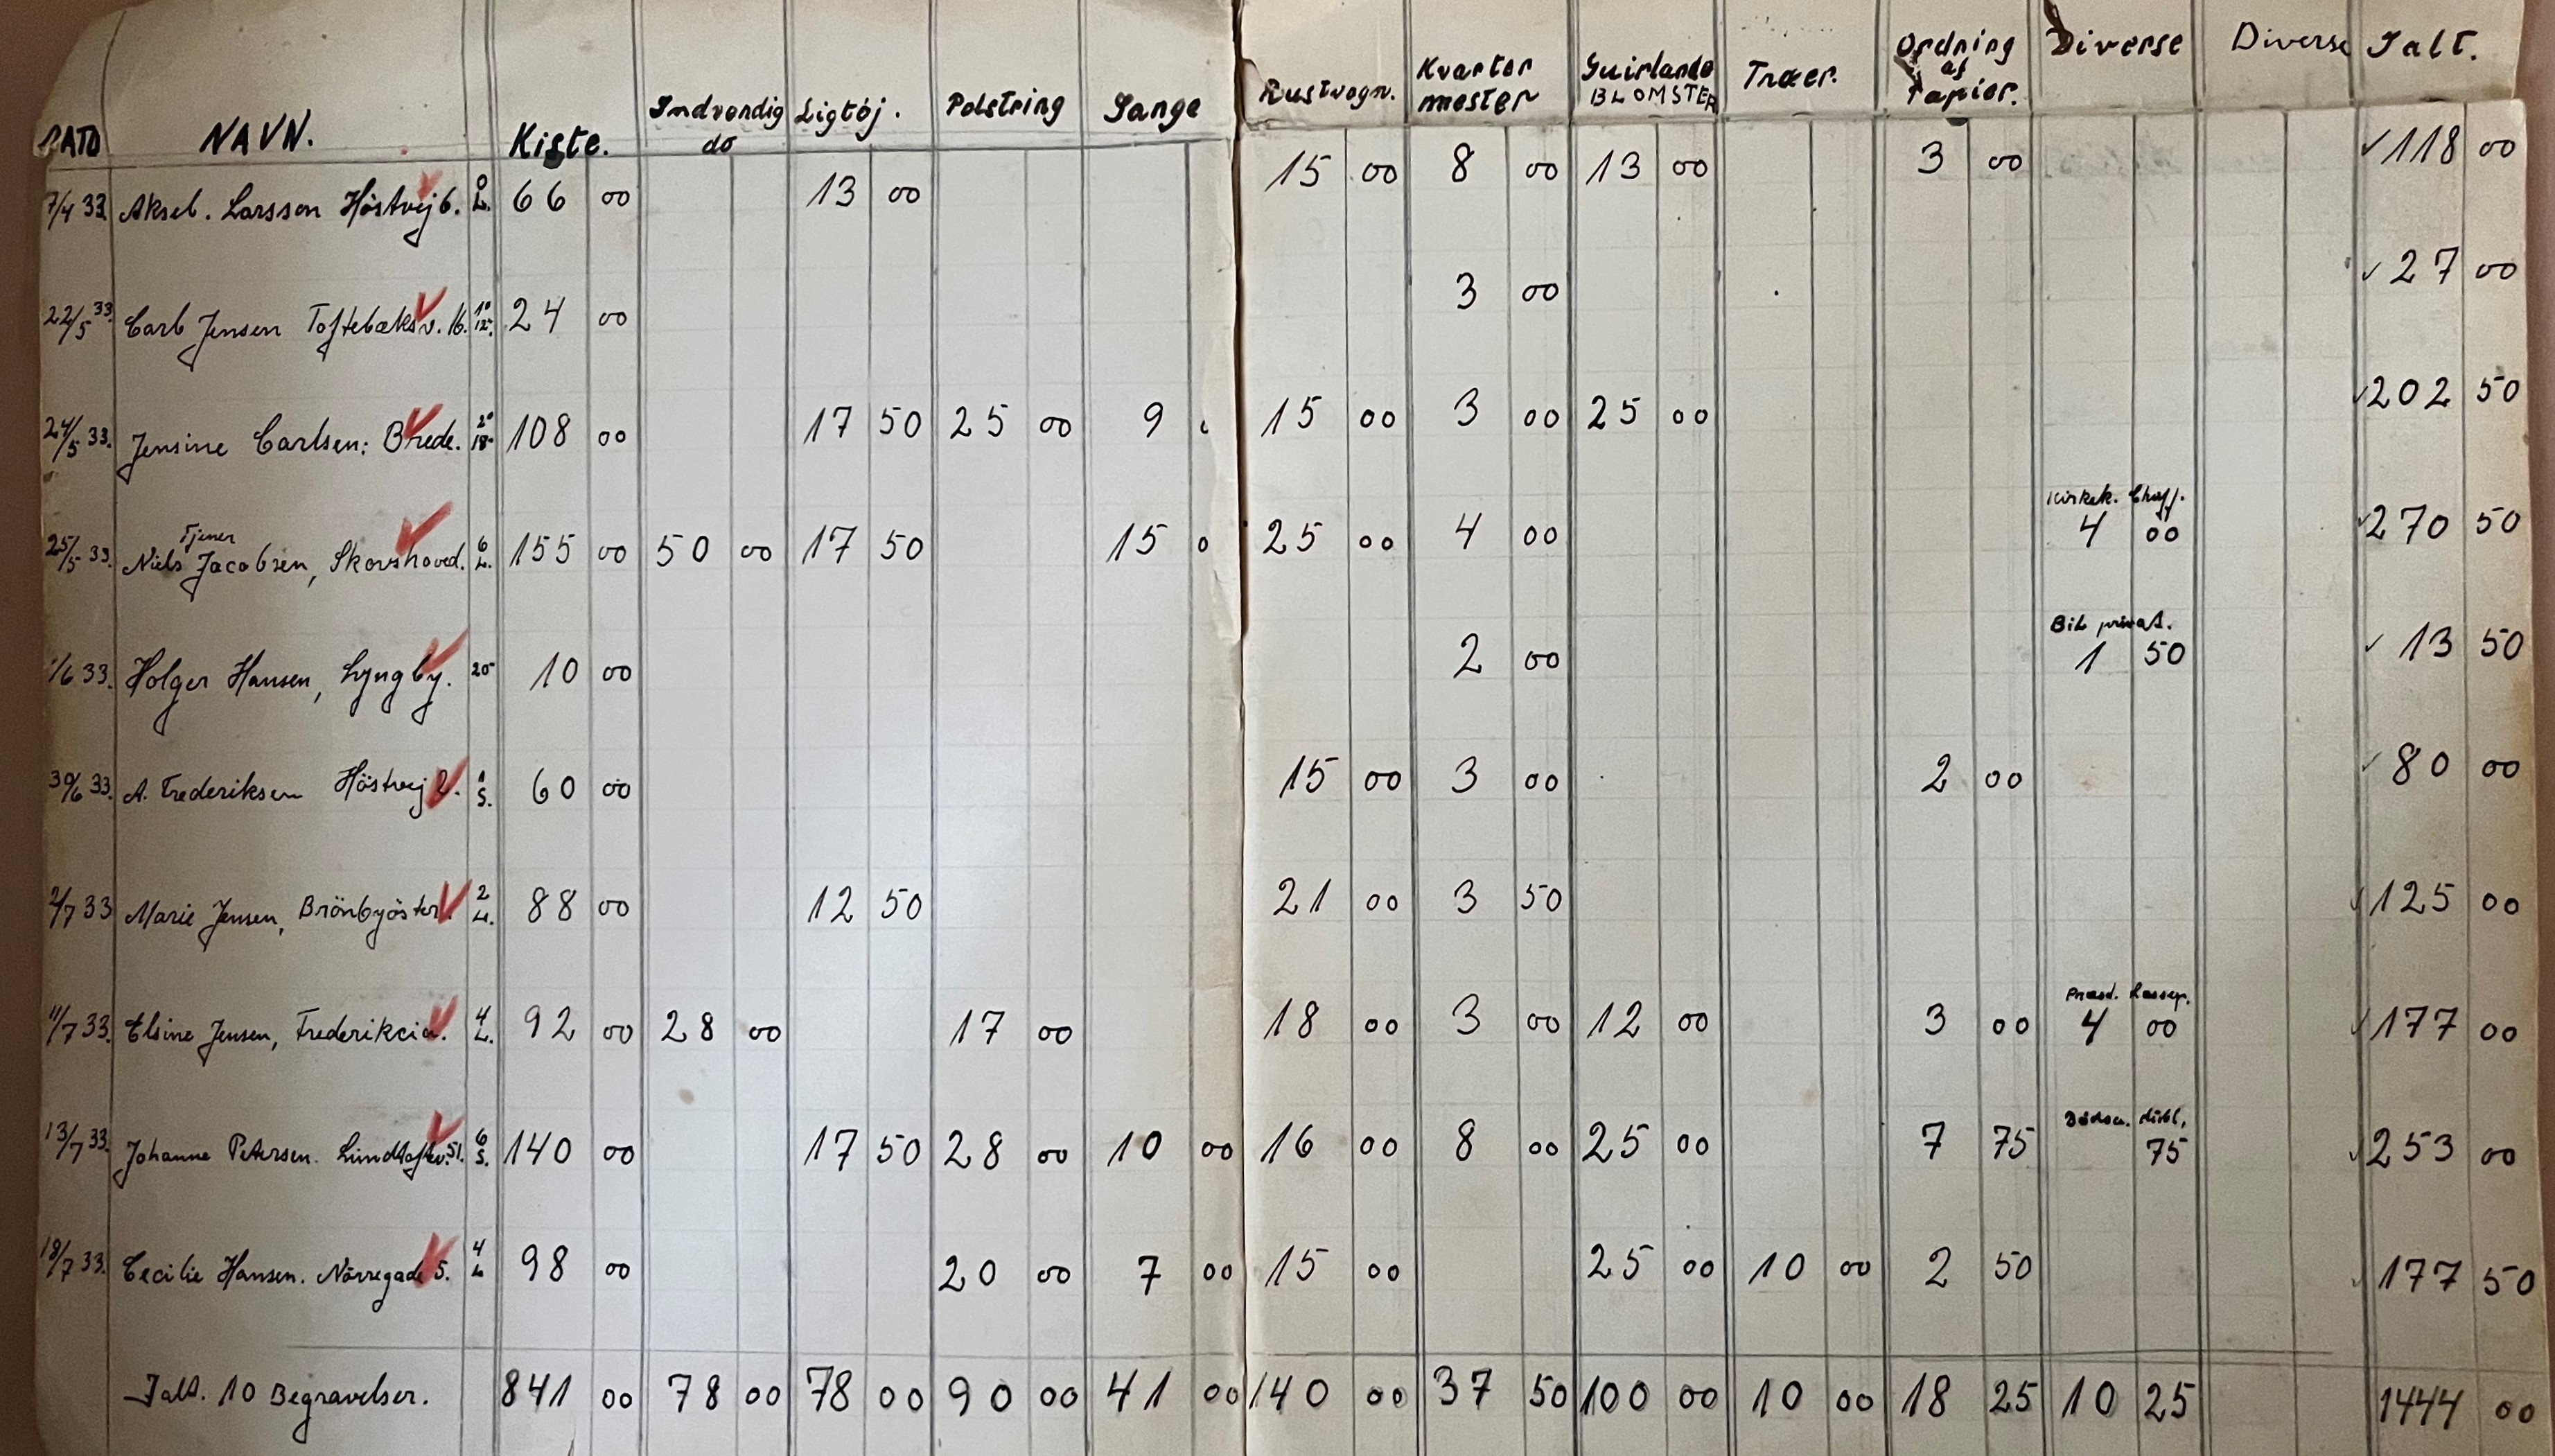 DATO NAVN. Kiste. Indvendig do Ligtöj. Polstring Sange Rustvogn. Kvarter mester Guirlande BLOMSTER Træer. Ordning af Papier. Diverse Diverse Ialt.
7/4 33. Aksel. Larssen Höstvej 6. 0 L. 66 00 13 00 15 00 8 00 13 00 3 00 118 00
22/5 33. Carl Jensen Toftebæksv. 16. 24 00 3 00 27 00
24/5 33. Jensine Carlsen: Brede. 108 00 17 50 25 00 9 15 00 3 00 25 00 202 50
Tjener Kirkek. Chauff.
25/5 33. Niels Jacobsen, Skovshoved. 6 L. 155 00 50 00 17 50 15 0 25 00 4 00 4 00 270 50
Bil privat.
/6 33. Holger Hansen, Lyngby. 10 00 2 00 1 50 13 50
30/6 33. A. Frederiksen Höstvej 2. 1 S. 60 00 15 00 3 00 2 00 80 00
2/7 33 Marie Jensen, Brönbyöster. 2 L. 88 00 12 50 21 00 3 50 125 00
Præst.
11/7 33. Elsine Jensen, Frederikcia. 4 L. 92 00 28 00 17 00 18 00 3 00 12 00 3 00 4 00 177 00
13/7 33. Johanne Petersen. Lundtoftev. 51. 6 S. 140 00 17 50 28 00 10 00 16 00 8 00 25 00 7 75 75 253 00
18/7 33. Cecilie Hansen. Nörregade 5. 4 L 98 00 20 00 7 00 15 00 25 00 10 00 2 50 177 50
Ialt. 10 Begravelser. 841 00 78 00 78 00 90 00 41 00 140 00 37 50 100 00 10 00 18 25 10 25 1444 00